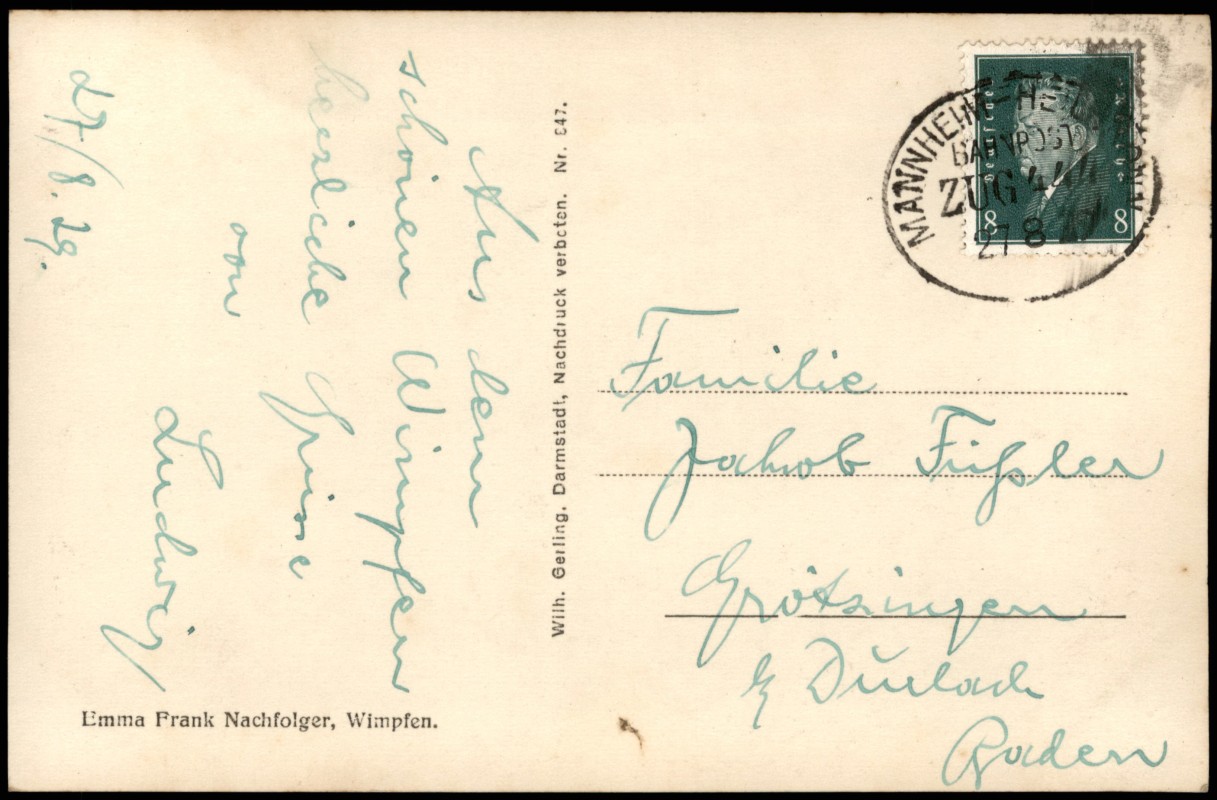 27/8. 29.
Aus dem
schönen Wimpfen
herzliche Grüsse
von
Ludwig
Emma Frank Nachfolger, Wimpfen.
Wilh. Gerling, Darmstadt, Nachdruck verboten. Nr. 847.
Deutsches
8 8
MANNHEIM-HEILBRONN
BAHNPOST
ZUG
27 8
Familie
Jakob Füßler
Grötzingen
b/ Durlach
Baden